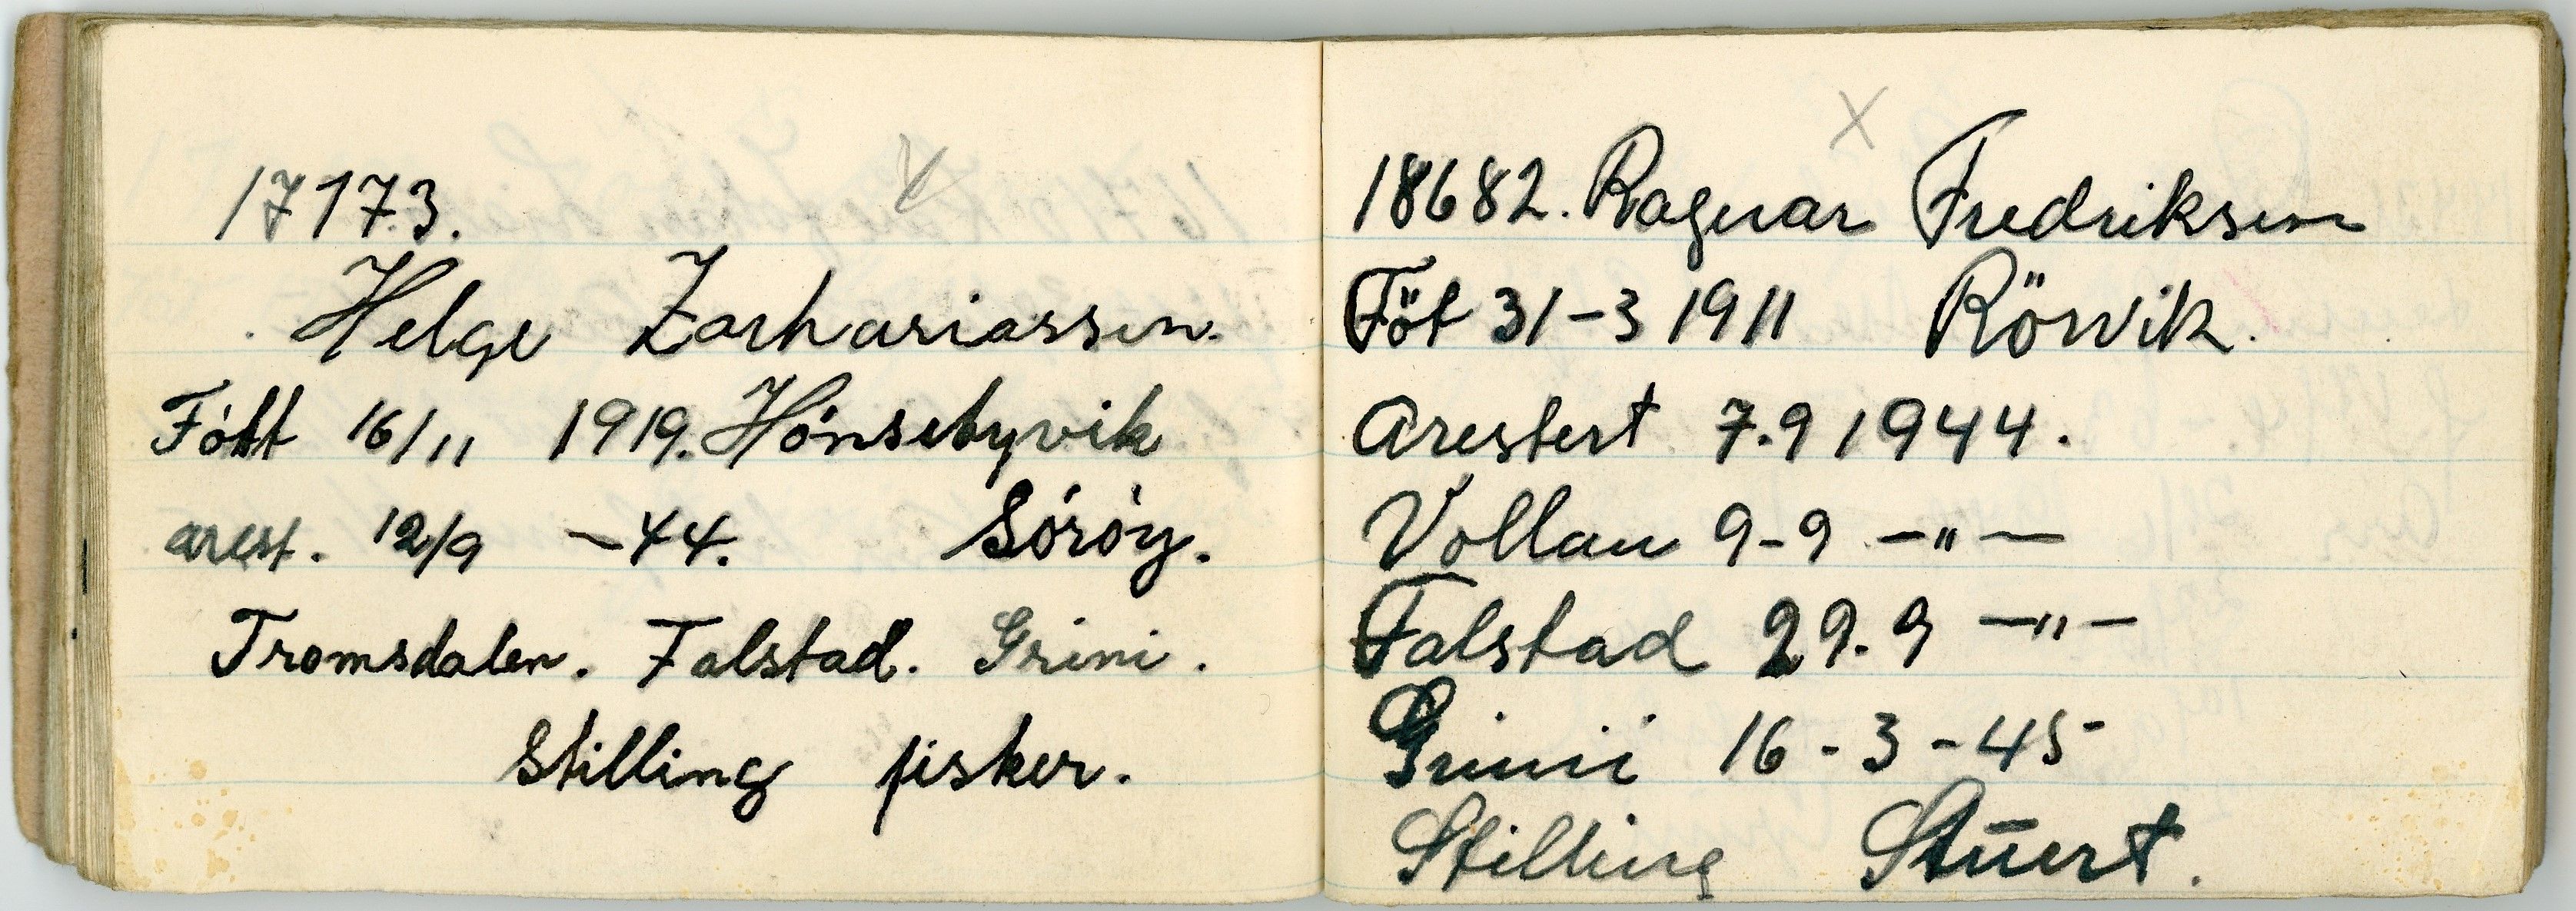 17173.
Helge Zachariassen.
Fótt 16/11 1919. Hónsebyvik
arest. 12/9 -44. Sóróy.
Tromsdalen. Falstad. Grini.
Stilling fisker.
X
18682. Ragnar Fredriksen
Föt 31-3 1911 Rörvik.
Arestert 7.9 1944.
Vollan 9-9 -"-
Falstad 29.9 -"-
Grinii 16-3-45
Stilling Stūert.